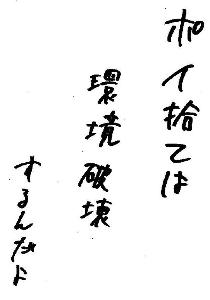 ポイ拾ては
環境破壊
するんだよ